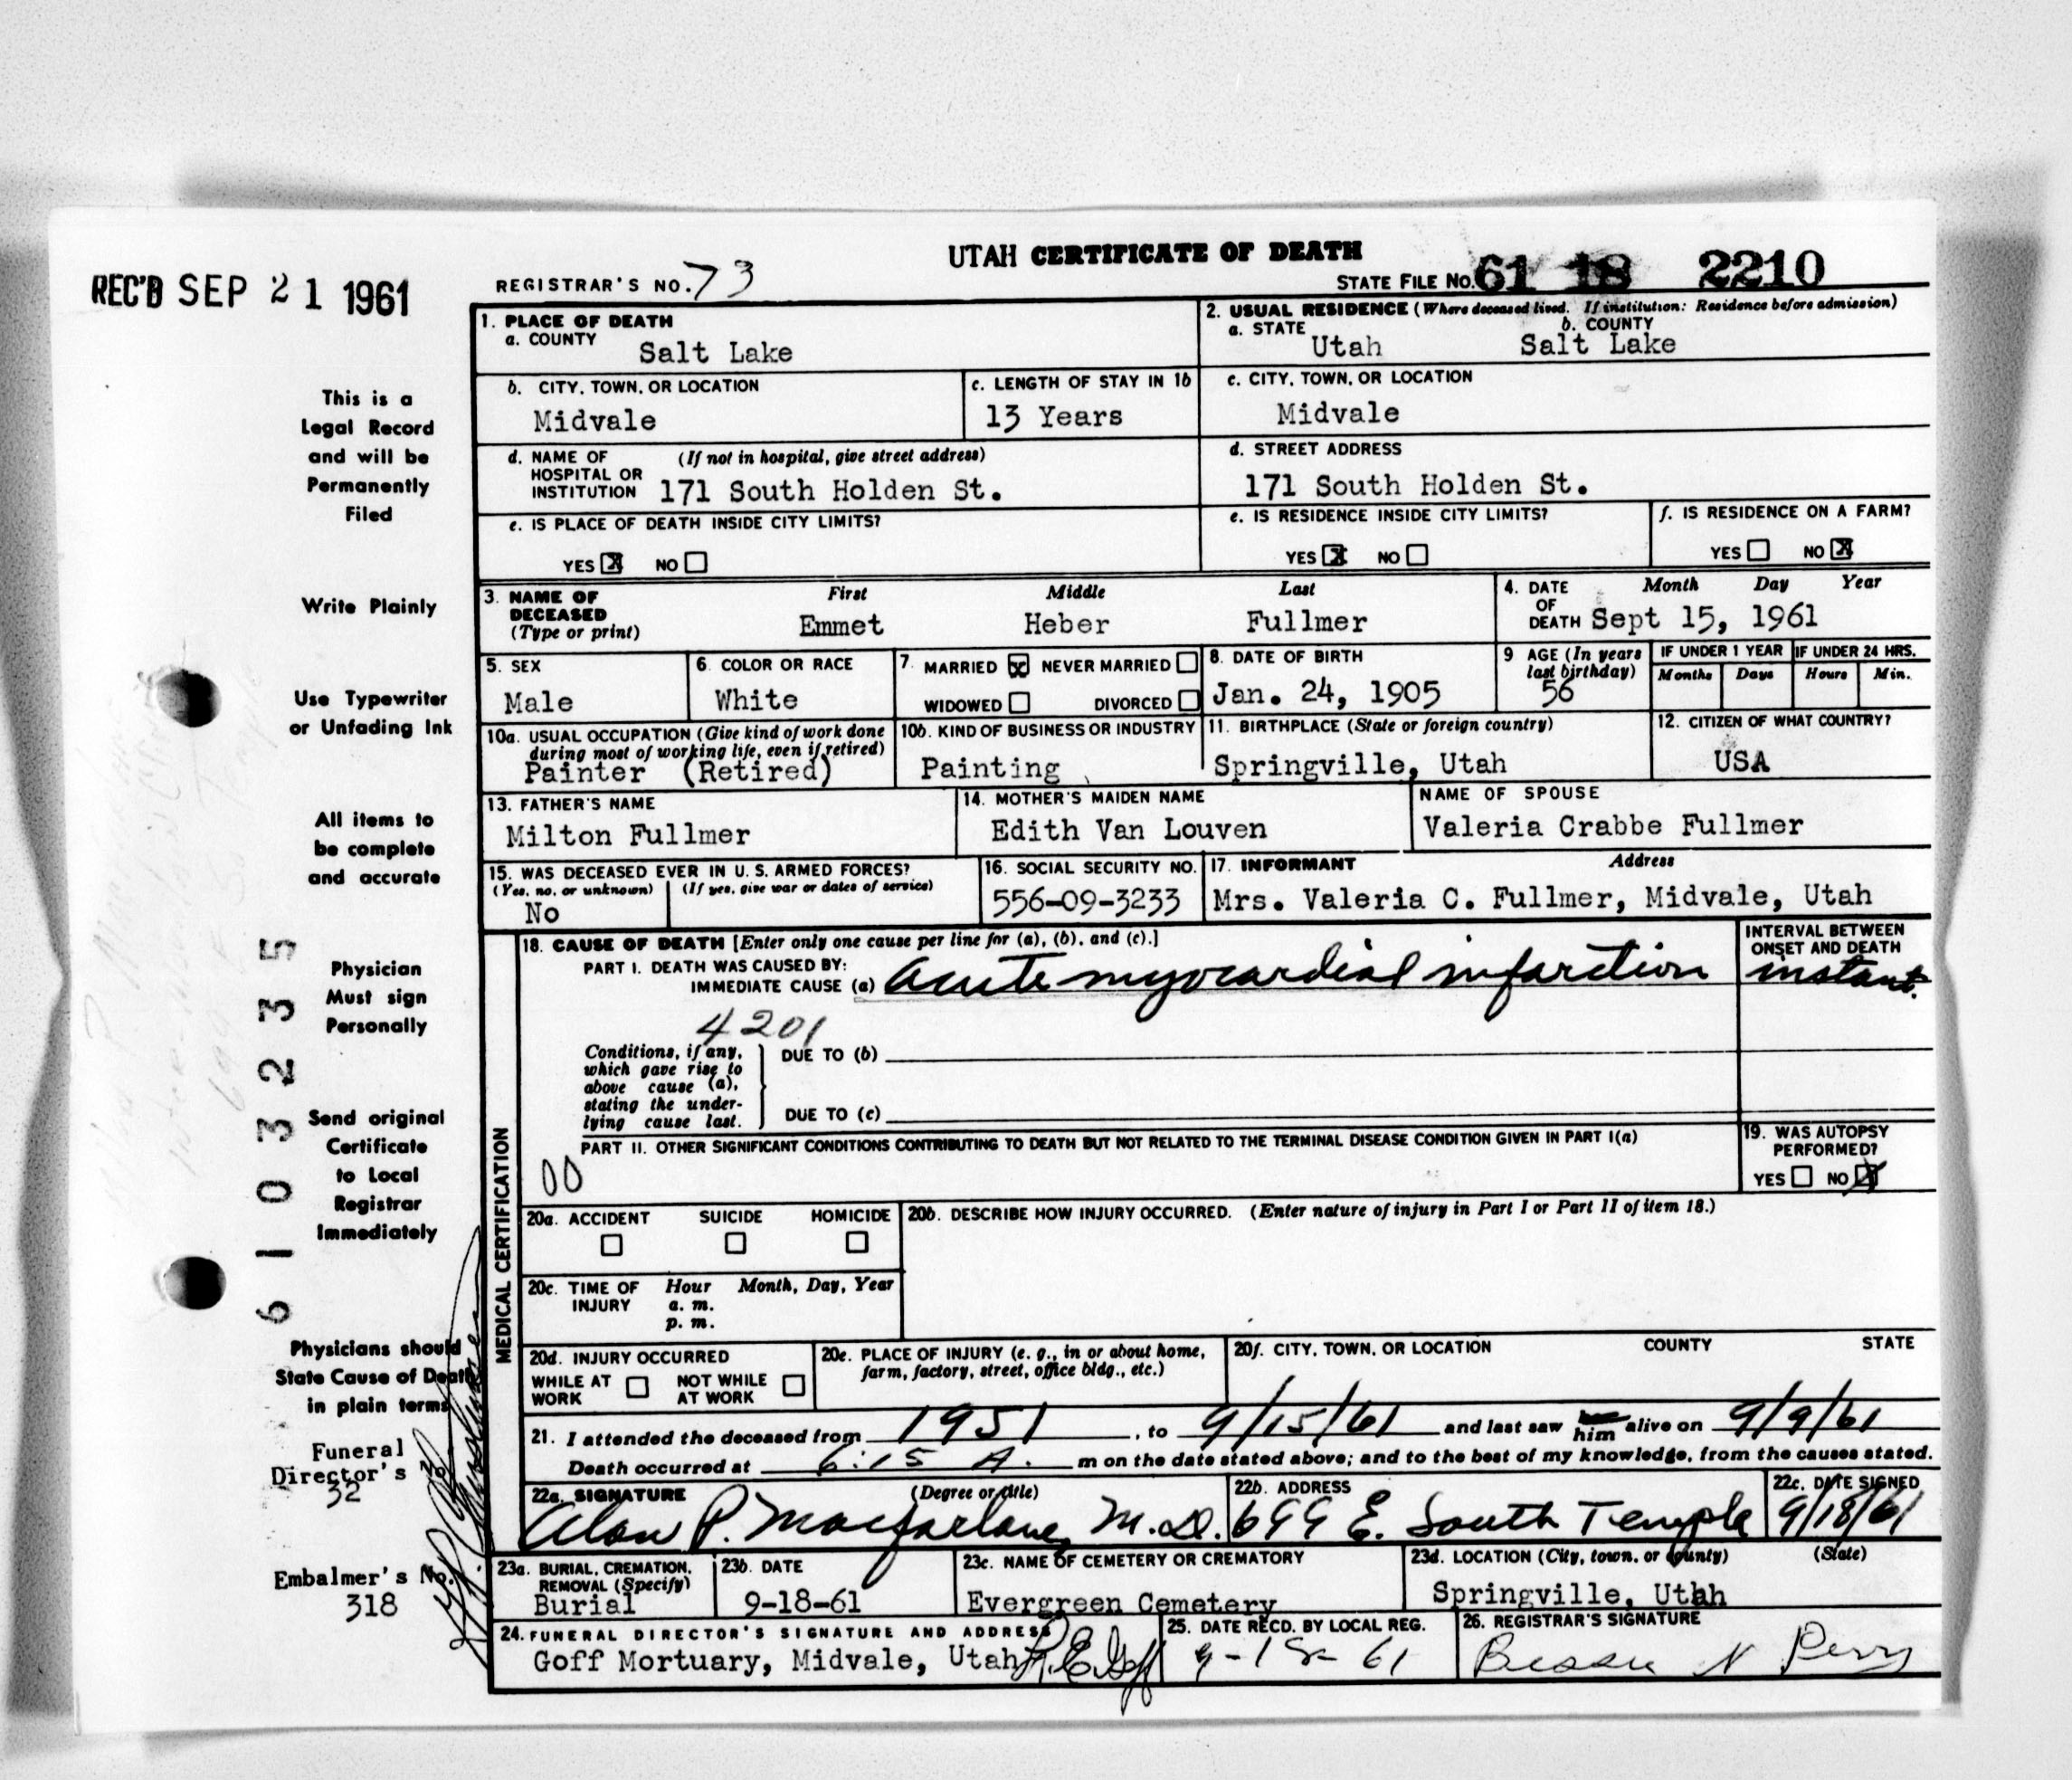 UTAH CERTIFICATE OF DEATH
REC'D SEP 21 1961
REGISTRAR'S NO. 73
STATE FILE NO. 61 18 2210
1. PLACE OF DEATH
a. COUNTY
Salt Lake
2. USUAL RESIDENCE (Where deceased lived. If institution: Residence before admission)
a. STATE b. COUNTY
Utah Salt Lake
b. CITY, TOWN, OR LOCATION
Midvale
c. LENGTH OF STAY IN 1b
13 Years
c. CITY, TOWN, OR LOCATION
Midvale
d. NAME OF (If not in hospital, give street address)
HOSPITAL OR
INSTITUTION 171 South Holden St.
d. STREET ADDRESS
171 South Holden St.
e. IS PLACE OF DEATH INSIDE CITY LIMITS?
YES X NO
e. IS RESIDENCE INSIDE CITY LIMITS?
YES X NO
f. IS RESIDENCE ON A FARM?
YES NO X
3. NAME OF First Middle Last
DECEASED
(Type or print) Emmet Heber Fullmer
4. DATE Month Day Year
OF
DEATH Sept 15, 1961
5. SEX
Male
6. COLOR OR RACE
White
7. MARRIED X NEVER MARRIED
WIDOWED DIVORCED
8. DATE OF BIRTH
Jan. 24, 1905
9 AGE (In years
last birthday)
56
IF UNDER 1 YEAR
Months Days
IF UNDER 24 HRS.
Hours Min.
10a. USUAL OCCUPATION (Give kind of work done
during most of working life, even if retired)
Painter (Retired)
10b. KIND OF BUSINESS OR INDUSTRY
Painting
11. BIRTHPLACE (State or foreign country)
Springville, Utah
12. CITIZEN OF WHAT COUNTRY?
USA
13. FATHER'S NAME
Milton Fullmer
14. MOTHER'S MAIDEN NAME
Edith Van Louven
NAME OF SPOUSE
Valeria Crabbe Fullmer
15. WAS DECEASED EVER IN U. S. ARMED FORCES?
(Yes, no, or unknown) (If yes, give war or dates of service)
No
16. SOCIAL SECURITY NO.
556-09-3233
17. INFORMANT Address
Mrs. Valeria C. Fullmer, Midvale, Utah
MEDICAL CERTIFICATION
18. CAUSE OF DEATH [Enter only one cause per line for (a), (b), and (c).]
PART I. DEATH WAS CAUSED BY:
IMMEDIATE CAUSE (a) acute myocardial infarction
INTERVAL BETWEEN
ONSET AND DEATH
instant.
4201
Conditions, if any,
which gave rise to
above cause (a),
stating the under-
lying cause last.
DUE TO (b)
DUE TO (c)
PART II. OTHER SIGNIFICANT CONDITIONS CONTRIBUTING TO DEATH BUT NOT RELATED TO THE TERMINAL DISEASE CONDITION GIVEN IN PART I(a)
00
19. WAS AUTOPSY
PERFORMED?
YES NO X
20a. ACCIDENT SUICIDE HOMICIDE
20b. DESCRIBE HOW INJURY OCCURRED. (Enter nature of injury in Part I or Part II of item 18.)
20c. TIME OF Hour Month, Day, Year
INJURY a. m.
p. m.
20d. INJURY OCCURRED
WHILE AT NOT WHILE
WORK AT WORK
20e. PLACE OF INJURY (e. g., in or about home,
farm, factory, street, office bldg., etc.)
20f. CITY, TOWN, OR LOCATION COUNTY STATE
21. I attended the deceased from 1951, to 9/15/61 and last saw him alive on 9/9/61
Death occurred at 6:15 A. m on the date stated above; and to the best of my knowledge, from the causes stated.
22a. SIGNATURE (Degree or title)
Alan P. Macfarlane, M.D.
22b. ADDRESS
699 E. South Temple
22c. DATE SIGNED
9/18/61
23a. BURIAL, CREMATION,
REMOVAL (Specify)
Burial
23b. DATE
9-18-61
23c. NAME OF CEMETERY OR CREMATORY
Evergreen Cemetery
23d. LOCATION (City, town, or county) (State)
Springville, Utah
24. FUNERAL DIRECTOR'S SIGNATURE AND ADDRESS
Goff Mortuary, Midvale, Utah R.E. Goff
25. DATE RECD. BY LOCAL REG.
9-18-61
26. REGISTRAR'S SIGNATURE
Bessie N Perry
This is a
Legal Record
and will be
Permanently
Filed
Write Plainly
Use Typewriter
or Unfading Ink
All items to
be complete
and accurate
Physician
Must sign
Personally
Send original
Certificate
to Local
Registrar
Immediately
Physicians should
State Cause of Death
in plain terms
Funeral
Director's No.
32
Embalmer's No.
318
61032235